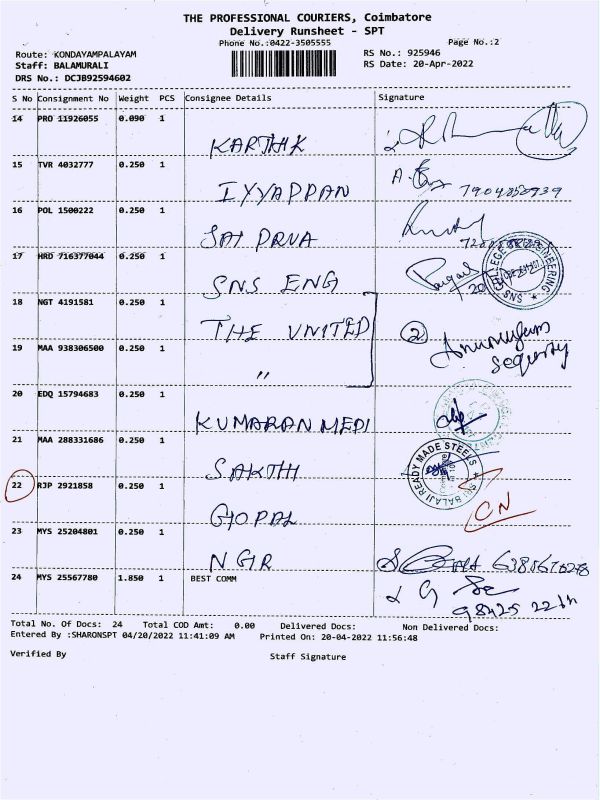 THE PROFESSIONAL COURIERS, Coimbatore
Delivery Runsheet - SPT
Phone No.:0422-3505555
Page No.:2
Route: KONDAYAMPALAYAM
RS No.: 925946
Staff: BALAMURALI
RS Date: 20-Apr-2022
DRS No.: DCJB92594602
S No Consignment No Weight PCS Consignee Details Signature
14 PRO 11926055 0.090 1
KARTHK
15 TVR 4032777 0.250 1
IYYAPPAN
16 POL 1500222 0.250 1
SAI DRUA
17 HRD 716377044 0.250 1
SNS ENG
SNS COLLEGE OF ENGINEERING
18 NGT 4191581 0.250 1
THE UNITED
2
19 MAA 938306500 0.250 1
"
20 EDQ 15794683 0.250 1
KUMARAN MEDI
21 MAA 288331686 0.250 1
SAKTHI
SRI BALAJI READY MADE STEELS
22 RJP 2921858 0.250 1
GOPAL
CN
23 MYS 25204801 0.250 1
NGR
24 MYS 25567780 1.850 1 BEST COMM
Total No. Of Docs: 24 Total COD Amt: 0.00 Delivered Docs: Non Delivered Docs:
Entered By :SHARONSPT 04/20/2022 11:41:09 AM Printed On: 20-04-2022 11:56:48
Verified By
Staff Signature